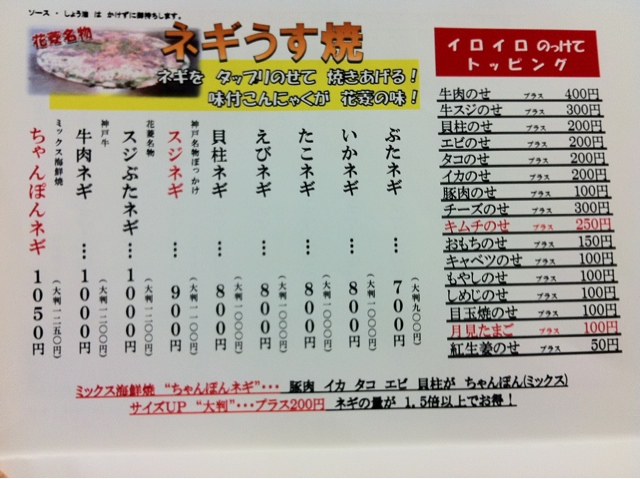 ソース・しょう油 は かけずに御持ちします。
花菱名物
ネギうす焼
ネギを タップリのせて 焼きあげる！
味付こんにゃくが 花菱の味！
ぶたネギ … 700円
(大判九〇〇円)
いかネギ … 800円
(大判一〇〇〇円)
たこネギ … 800円
(大判一〇〇〇円)
えびネギ … 800円
(大判一〇〇〇円)
貝柱ネギ … 800円
(大判一〇〇〇円)
神戸名物ぼっかけ
スジネギ … 900円
(大判一一〇〇円)
花菱名物
スジぶたネギ… 1000円
(大判一二〇〇円)
神戸牛
牛肉ネギ … 1000円
(大判一二〇〇円)
ミックス海鮮焼
ちゃんぽんネギ 1050円
(大判一二五〇円)
イロイロ のっけて
トッピング
牛肉のせ プラス 400円
牛スジのせ プラス 300円
貝柱のせ プラス 200円
エビのせ プラス 200円
タコのせ プラス 200円
イカのせ プラス 200円
豚肉のせ プラス 100円
チーズのせ プラス 300円
キムチのせ プラス 250円
おもちのせ プラス 150円
キャベツのせ プラス 100円
もやしのせ プラス 100円
しめじのせ プラス 100円
目玉焼のせ プラス 100円
月見たまご プラス 100円
紅生姜のせ プラス 50円
ミックス海鮮焼 “ちゃんぽんネギ”･･･ 豚肉 イカ タコ エビ 貝柱が ちゃんぽん(ミックス)
サイズUP “大判”･･･プラス200円 ネギの量が 1.5倍以上でお得！